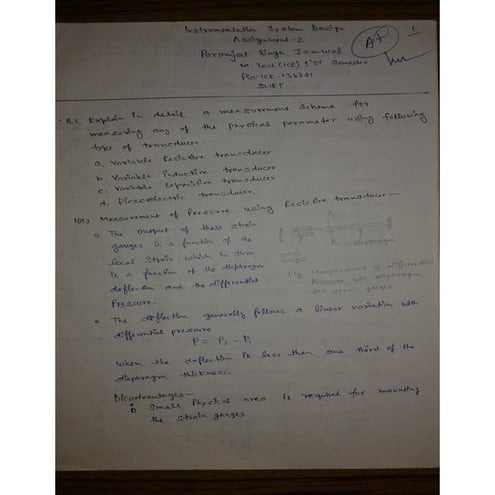 Instrumentation System Design
Assignment-2
Paramjeet Singh Jamwal
M. Tech (ICE) 1st Semester
PG-ICE-136321
SLIET
A+
1
Q.1. Explain in detail a measurement scheme for
measuring any of the physical parameter using following
type of transducer.
a. Variable Resistive transducer
b. Variable Inductive transducer
c. Variable Capacitive transducer
d. Piezoelectric transducer.
1(a) Measurement of Pressure using Resistive transducer—
The output of these strain
gauges is a function of the
local strain, which in turn,
is a function of the diaphragm
deflection and the differential
Pressure.
diaphragm
Fig. Measurement of differential
Pressure with diaphragm
and strain gauges.
The deflection generally follows a linear variation with
differential pressure
P = P2 - P1
When the deflection is less than one third of the
diaphragm thickness.
Disadvantages—
Small Physical area is required for mounting
the strain gauges